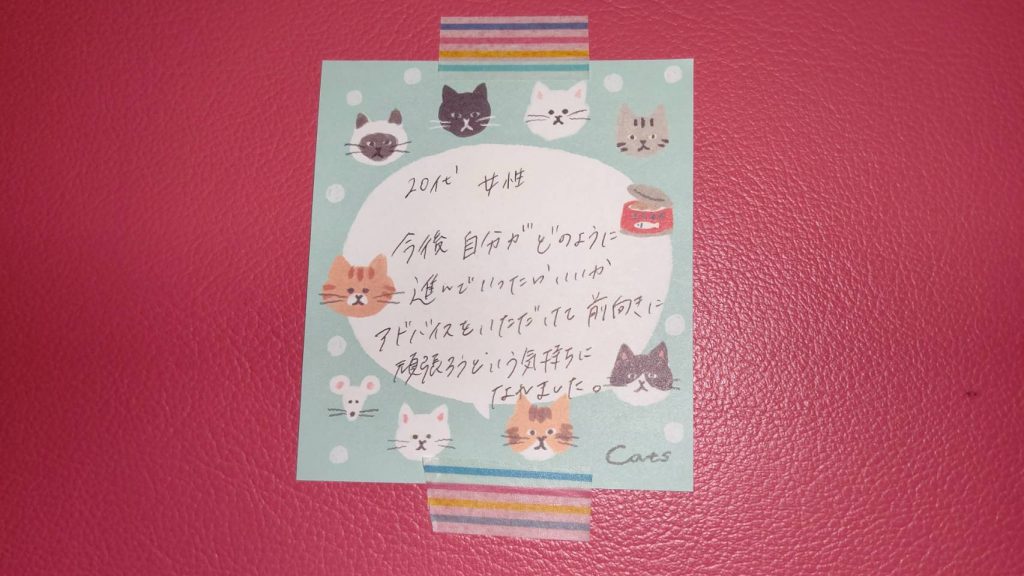 20代 女性
今後 自分がどのように
進んでいったらいいか
アドバイスをいただけて 前向きに
頑張ろうという気持ちに
なれました。
Cats